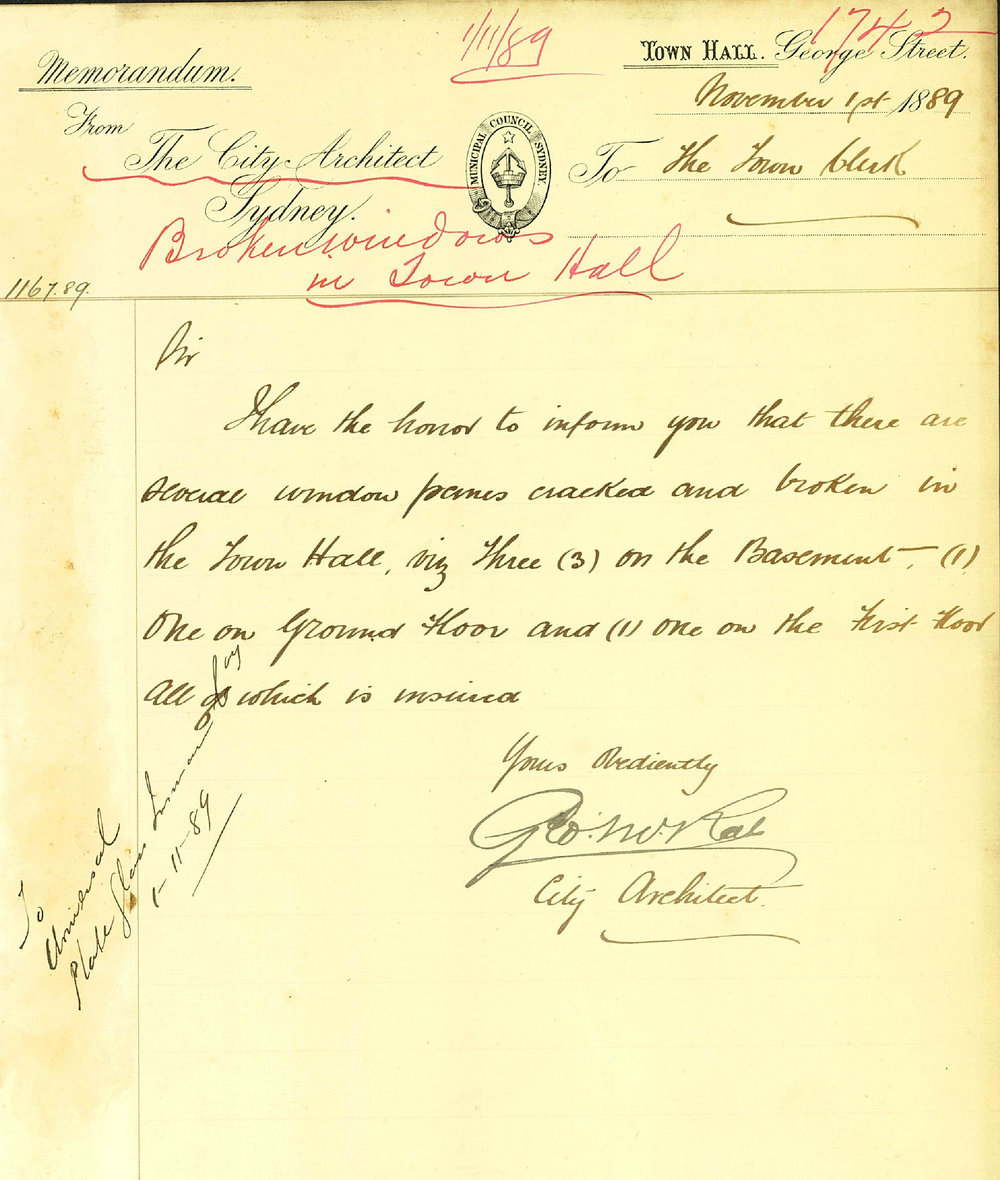 1742
1/11/89
Memorandum.
TOWN HALL. George Street.
November 1st 1889
From
The City Architect
Sydney.
MUNICIPAL COUNCIL SYDNEY.
To The Town Clerk
Broken windows
in Town Hall
1167.89.
Sir
I have the honor to inform you that there are
several window panes cracked and broken in
the Town Hall, viz Three (3) on the Basement, (1)
One on Ground Floor and (1) one on the First Floor
All of which is insured
Yours Obediently
Geo. McRae
City Architect.
To
Universal
Plate Glass Insurance Coy
1-11-89